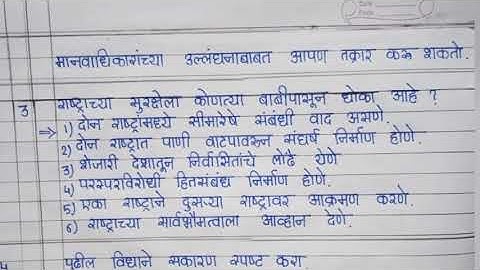 मानवाधिकारांच्या उल्लंघनाबाबत आपण तक्रार करू शकतो.
3 राष्ट्राच्या सुरक्षेला कोणत्या बाबींपासून धोका आहे ?
→ 1) दोन राष्ट्रांमध्ये सीमारेषे संबंधी वाद असणे.
2) दोन राष्ट्रात पाणी वाटपावरून संघर्ष निर्माण होणे.
3) शेजारी देशातून निर्वासितांचे लोंढे येणे
4) परस्परविरोधी हितसंबंध निर्माण होणे.
5) एका राष्ट्राने दुसऱ्या राष्ट्रावर आक्रमण करणे.
6) राष्ट्राच्या सार्वभौमत्वाला आव्हान देणे.
4 पुढील विधाने सकारण स्पष्ट करा.